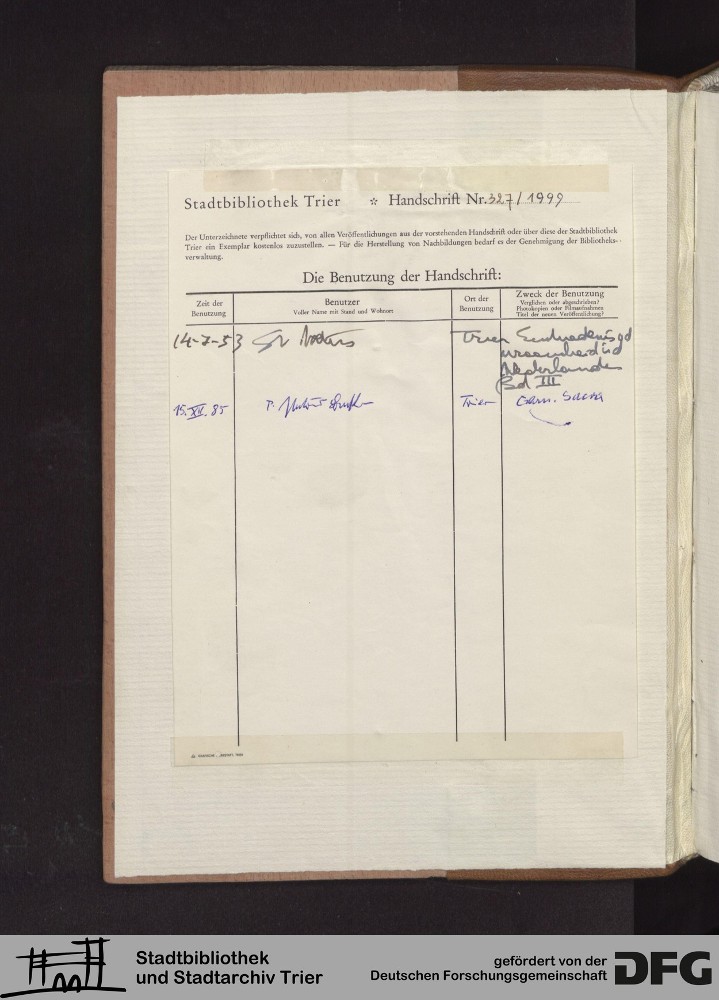 Stadtbibliothek Trier * Handschrift Nr. 327/1999
Der Unterzeichnete verpflichtet sich, von allen Veröffentlichungen aus der vorstehenden Handschrift oder über diese der Stadtbibliothek
Trier ein Exemplar kostenlos zuzustellen. — Für die Herstellung von Nachbildungen bedarf es der Genehmigung der Bibliotheks-
verwaltung.
Die Benutzung der Handschrift:
Zeit der
Benutzung
Benutzer
Voller Name mit Stand und Wohnort
Ort der
Benutzung
Zweck der Benutzung
Verglichen oder abgeschrieben?
Photokopien oder Filmaufnahmen
Titel der neuen Veröffentlichung?
14-7-53 Trier
Nederlanden
Bd III
15. XII. 85 P. Trier Germ. Sacra
Stadtbibliothek
und Stadtarchiv Trier
gefördert von der
Deutschen Forschungsgemeinschaft
DFG